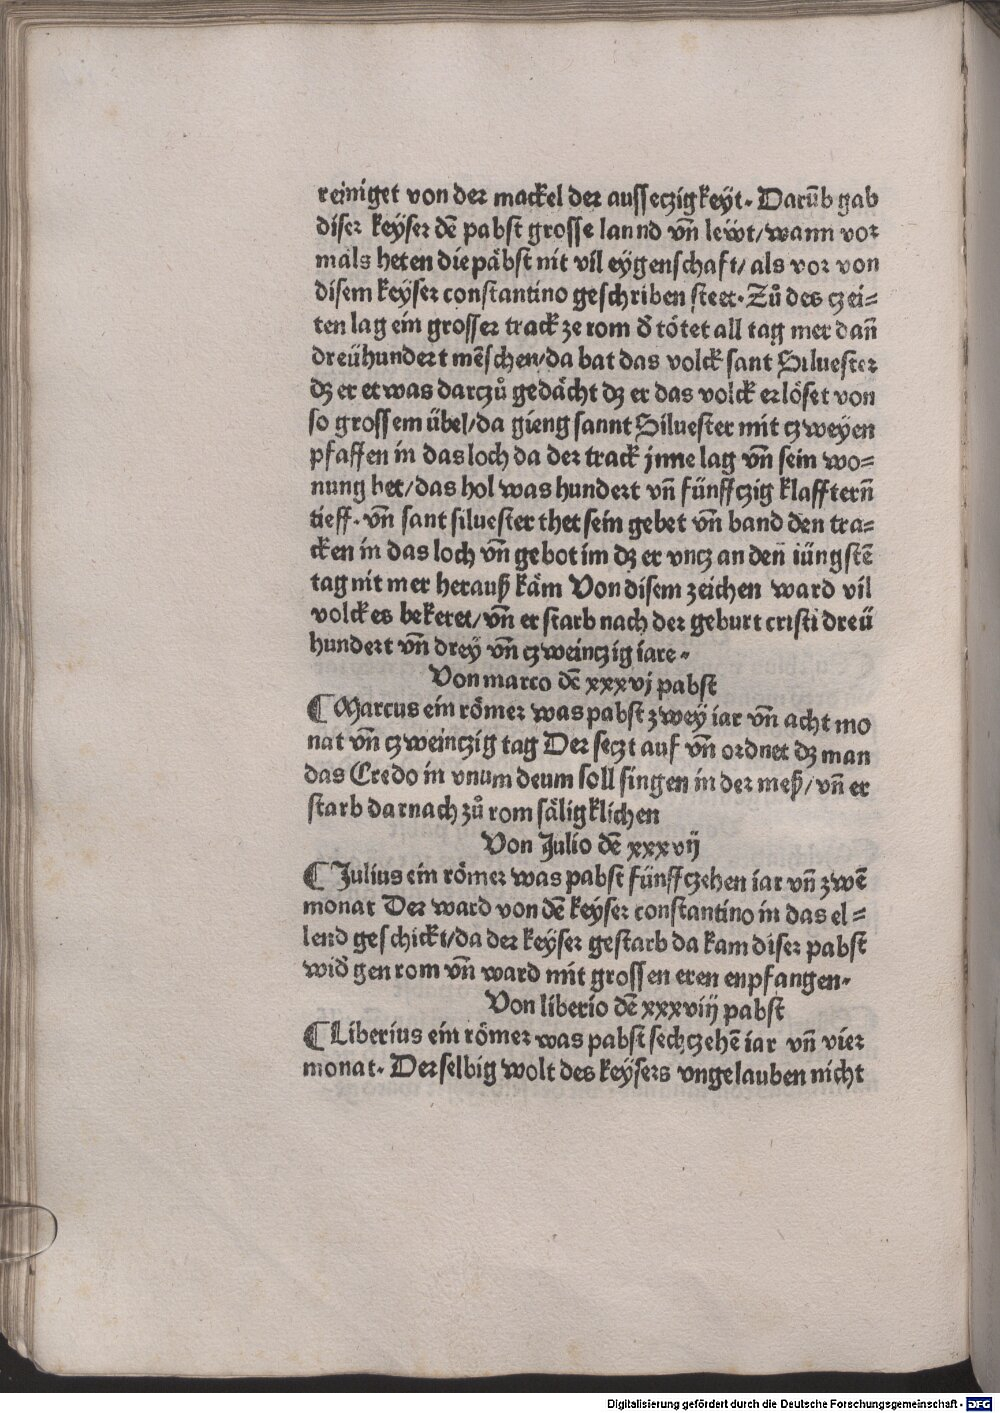 reiniget von der mackel der ausseczigkeyt. Darūb gab
diser keyser dē pabst grosse lannd vn̄ lewt/wann vor
mals heten die päbst nit vil eygenschaft/ als vor von
disem keyser constantino geschriben steet. Zů des czei⸗
ten lag ein grosser track ze rom ð tötet all tag mer dan̄
dreühundert mēschen/da bat das volck sant Siluester
dz er etwas darczů gedächt dz er das volck erlöset von
so grossem übel/da gieng sannt Siluester mit czweyen
pfaffen in das loch da der track jnne lag vn̄ sein wo⸗
nung het/das hol was hundert vn̄ fünffczig klafftern̄
tieff. vn̄ sant siluester thet sein gebet vn̄ band den tra⸗
cken in das loch vn̄ gebot im dz er vncz an den̄ iüngstē
tag nit mer herauß käm Von disem zeichen ward vil
volckes bekeret/vn̄ er starb nach der geburt cristi dreü
hundert vn̄ drey vn̄ czweinczig iare.
Von marco dē xxxvj pabst
¶ Marcus ein römer was pabst zwey iar vn̄ acht mo
nat vn̄ czweinczig tag Der seczt auf vn̄ ordnet dz man
das Credo in vnum deum soll singen in der meß/vn̄ er
starb darnach zů rom säligklichen
Von Julio dē xxxvij
¶ Julius ein römer was pabst fünffczehen iar vn̄ zwē
monat Der ward von dē keyser constantino in das el⸗
lend geschickt/da der keyser gestarb da kam diser pabst
wið gen rom vn̄ ward mit grossen eren enpfangen.
Von liberio dē xxxviij pabst
¶ Liberius ein römer was pabst sechczehē iar vn̄ vier
monat. Derselbig wolt des keysers vngelauben nicht
Digitalisierung gefördert durch die Deutsche Forschungsgemeinschaft - DFG